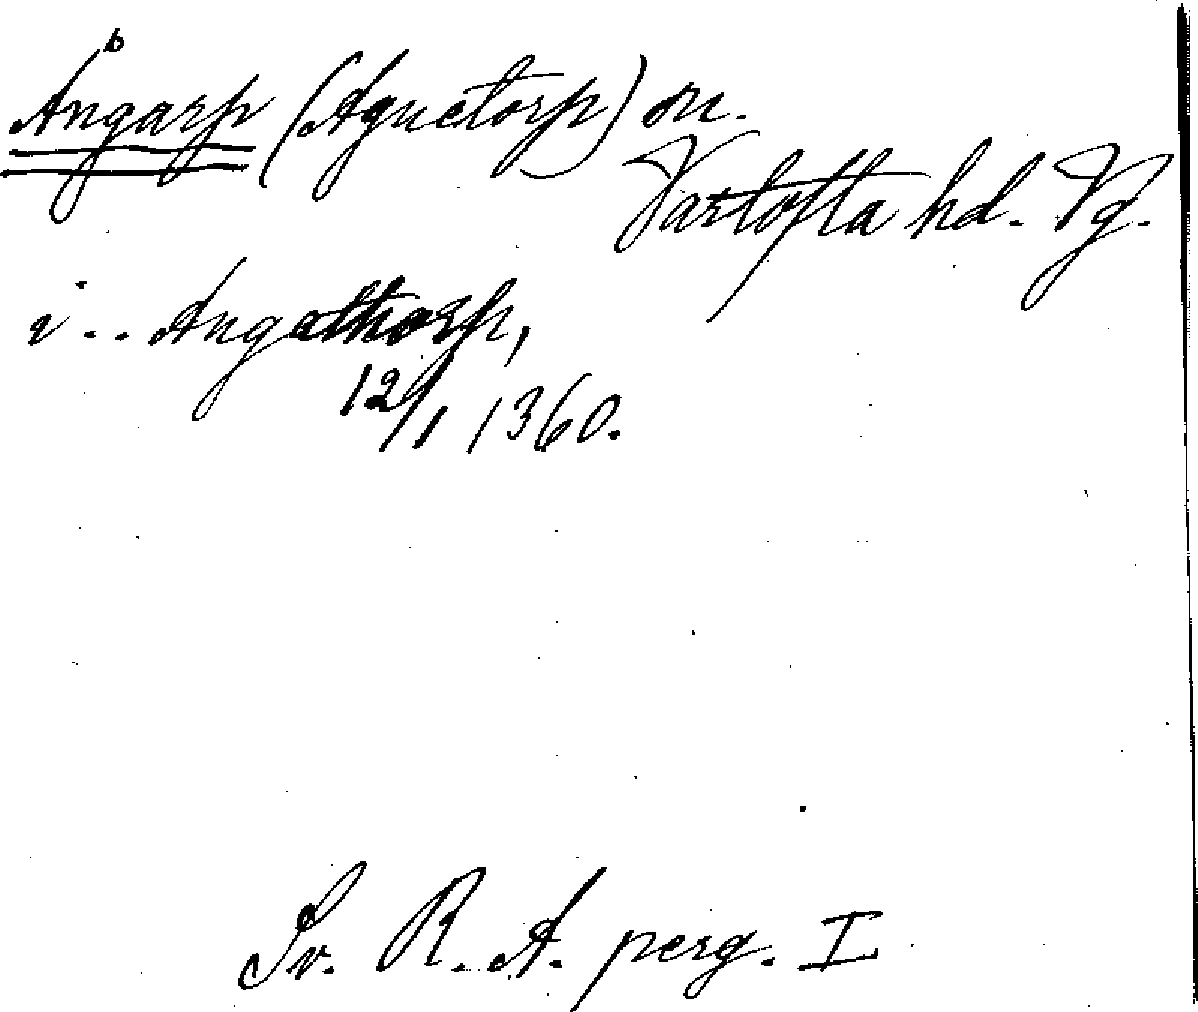 b
Angarp (Agnetorp) on.
Vartofta hd. Vg.
i .. Angathorp,
12/1 1360.
Sv. R. A. perg. I